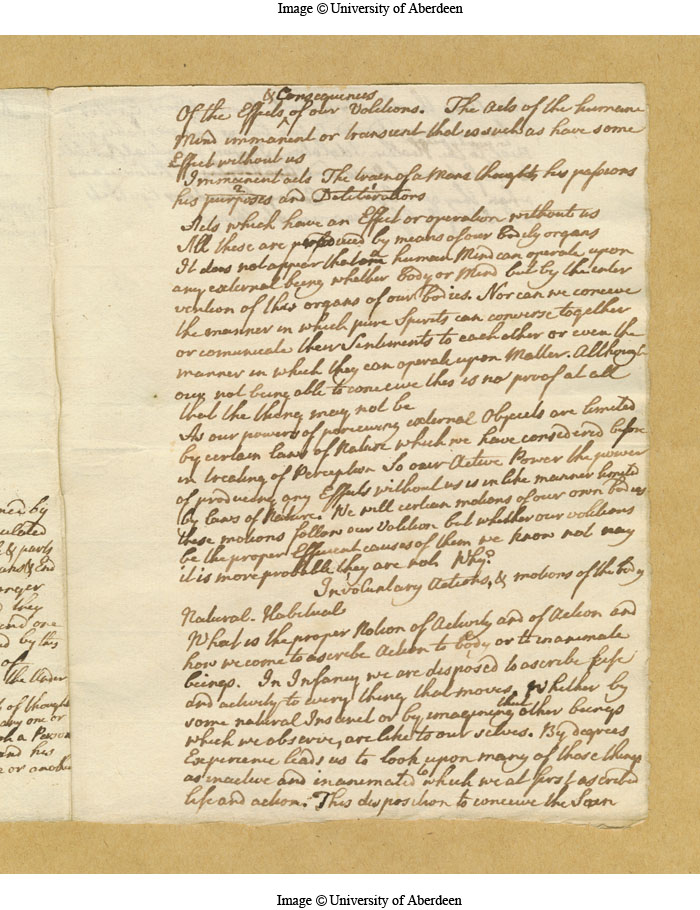 Image © University of Aberdeen
& Consequences
Of the Effects of our Volitions. The Acts of the humane
Mind immanent or transient that is such as have some
Effect without us
Immanent acts The train of a Mans thoughts, his passions
his purposes and Deliberations
Acts which have an Effect or operation without us
All these are produced by means of our bodily organs
It does not appear that human Mind can operate upon
any external being whether body or Mind but by the inter
vention of this organs of our bodies. Nor can we conceive
the manner in which pure Spirits can converse together
or comunicate their Sentiments to each other or even the
manner in which they can operate upon Matter. Allthough
our not being able to conceive this is no proof at all
that the thing may not be
As our powers of perceiving external Objects are limited
by certain laws of Nature which we have considered before
in treating of Perception So our Active Power the power
of producing any Effects without us is in like manner limited
by laws of Nature. We will certain motions of our own bodies
these motions follow our Volition but whether our volitions
be the proper Efficient causes of them we know not nay
it is more probable they are not. Why?
Involuntary Actions, & motions of the body
Natural. Habitual
What is the proper Notion of Activity and of Action and
how we come to ascribe Action to body or to inanimate
beings. In Infancy we are disposed to ascribe life
and activity to every thing that moves, Whether by
some natural Instinct or by imagining that other beings
which we observe, are like to our selves. By degrees
Experience leads us to look upon many of those things
as inactive and inanimate to which we at first ascribed
life and action. This disposition to conceive the Sun
ned by
culated
& parts
& End
anger
they
and one
d by this
of
the Under
of thought
any one or
a Person
and his
e or another
Image © University of Aberdeen